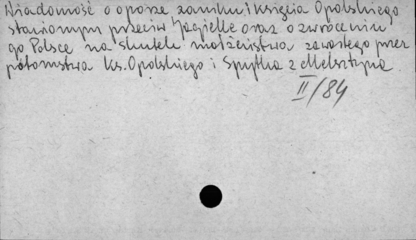 Wiadomość o oporze zamku i księcia Opolskiego
stawionym przeciw Jagielle oraz o zwróceniu
go Polsce na skutek małżeństwa zawartego przez
potomstwa ks. Opolskiego i Spytka z Melsztyna
II/84